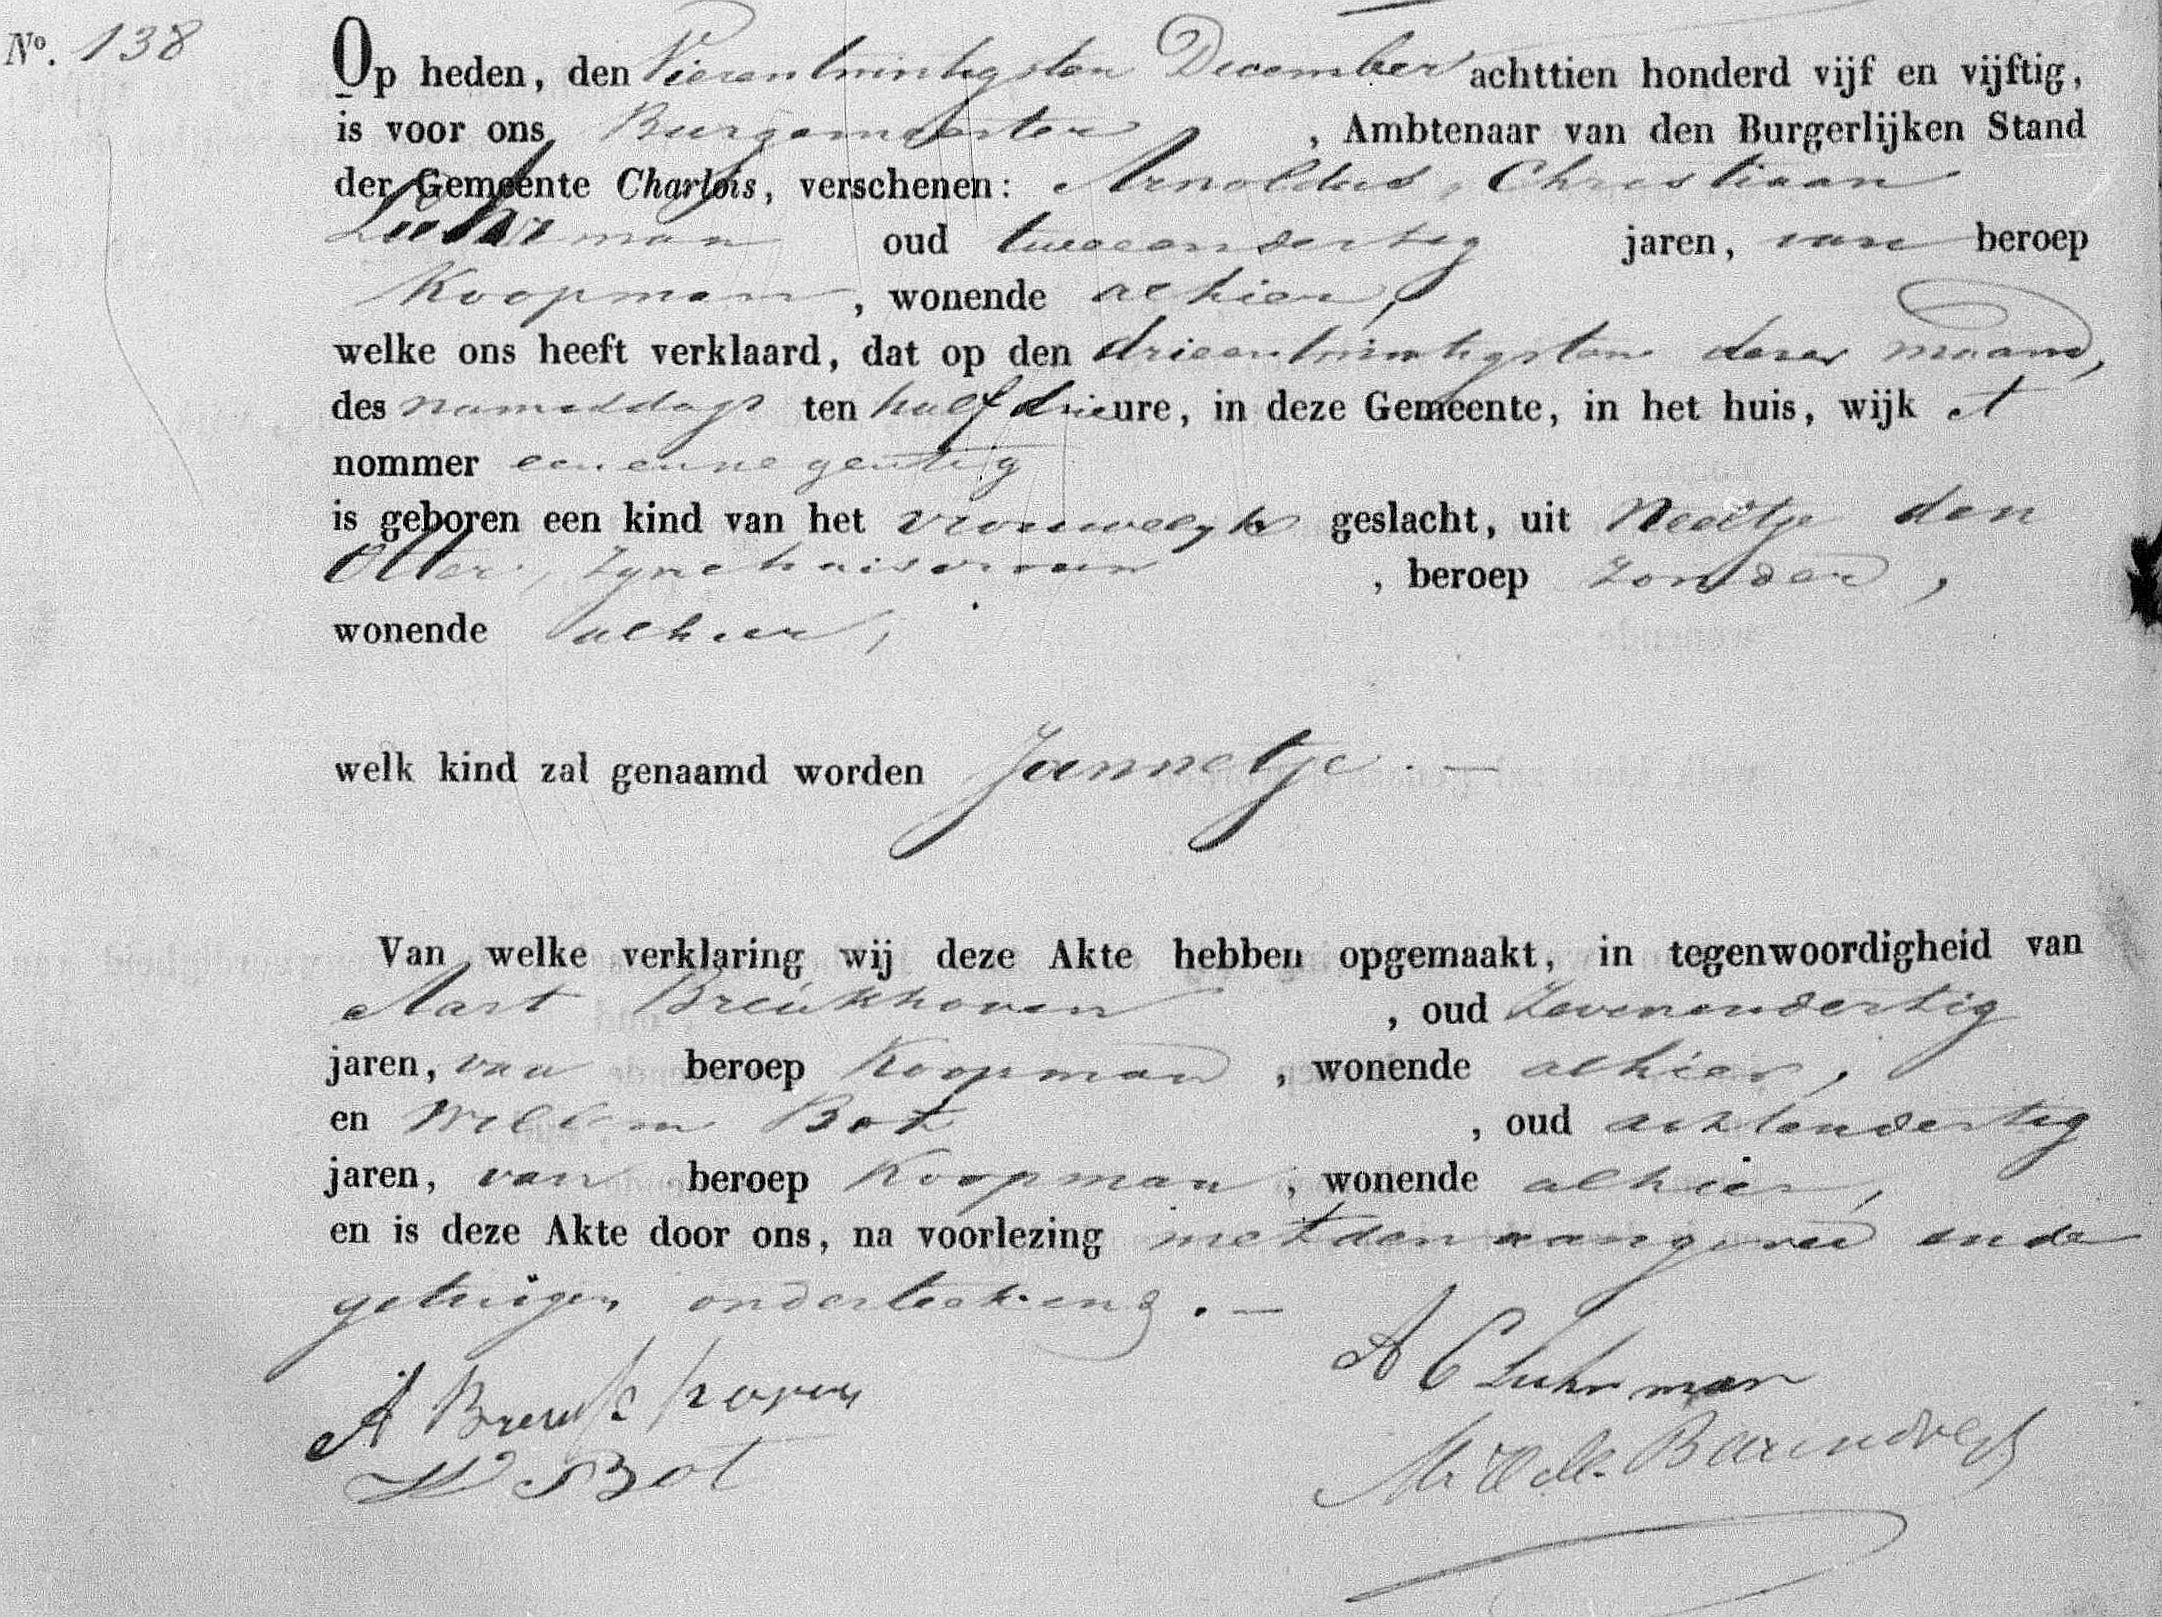 No. 138
Op heden, den Vierentwintigsten December achttien honderd vijf en vijftig,
is voor ons Burgemeester , Ambtenaar van den Burgerlijken Stand
der Gemeente Charlois, verschenen: Arnoldus, Christiaan
Luhrman oud tweeendertig jaren, van beroep
Koopman , wonende alhier,
welke ons heeft verklaard, dat op den drieentwintigsten dezer maand,
des namiddags ten half drie ure, in deze Gemeente, in het huis, wijk A
nommer eenennegentig
is geboren een kind van het vrouwelyk geslacht, uit Neeltje den
Otter, zyne huisvrouw , beroep zonder,
wonende alhier,
welk kind zal genaamd worden Jannetje. —
Van welke verklaring wij deze Akte hebben opgemaakt, in tegenwoordigheid van
Aart Breukhoven , oud zevenendertig
jaren, van beroep Koopman , wonende alhier,
en Willem Bot , oud achtendertig
jaren, van beroep Koopman , wonende alhier,
en is deze Akte door ons, na voorlezing met den aangever en de
getuigen onderteekend. —
A C Luhrman
A Breukhoven
Barendregt
W Bot